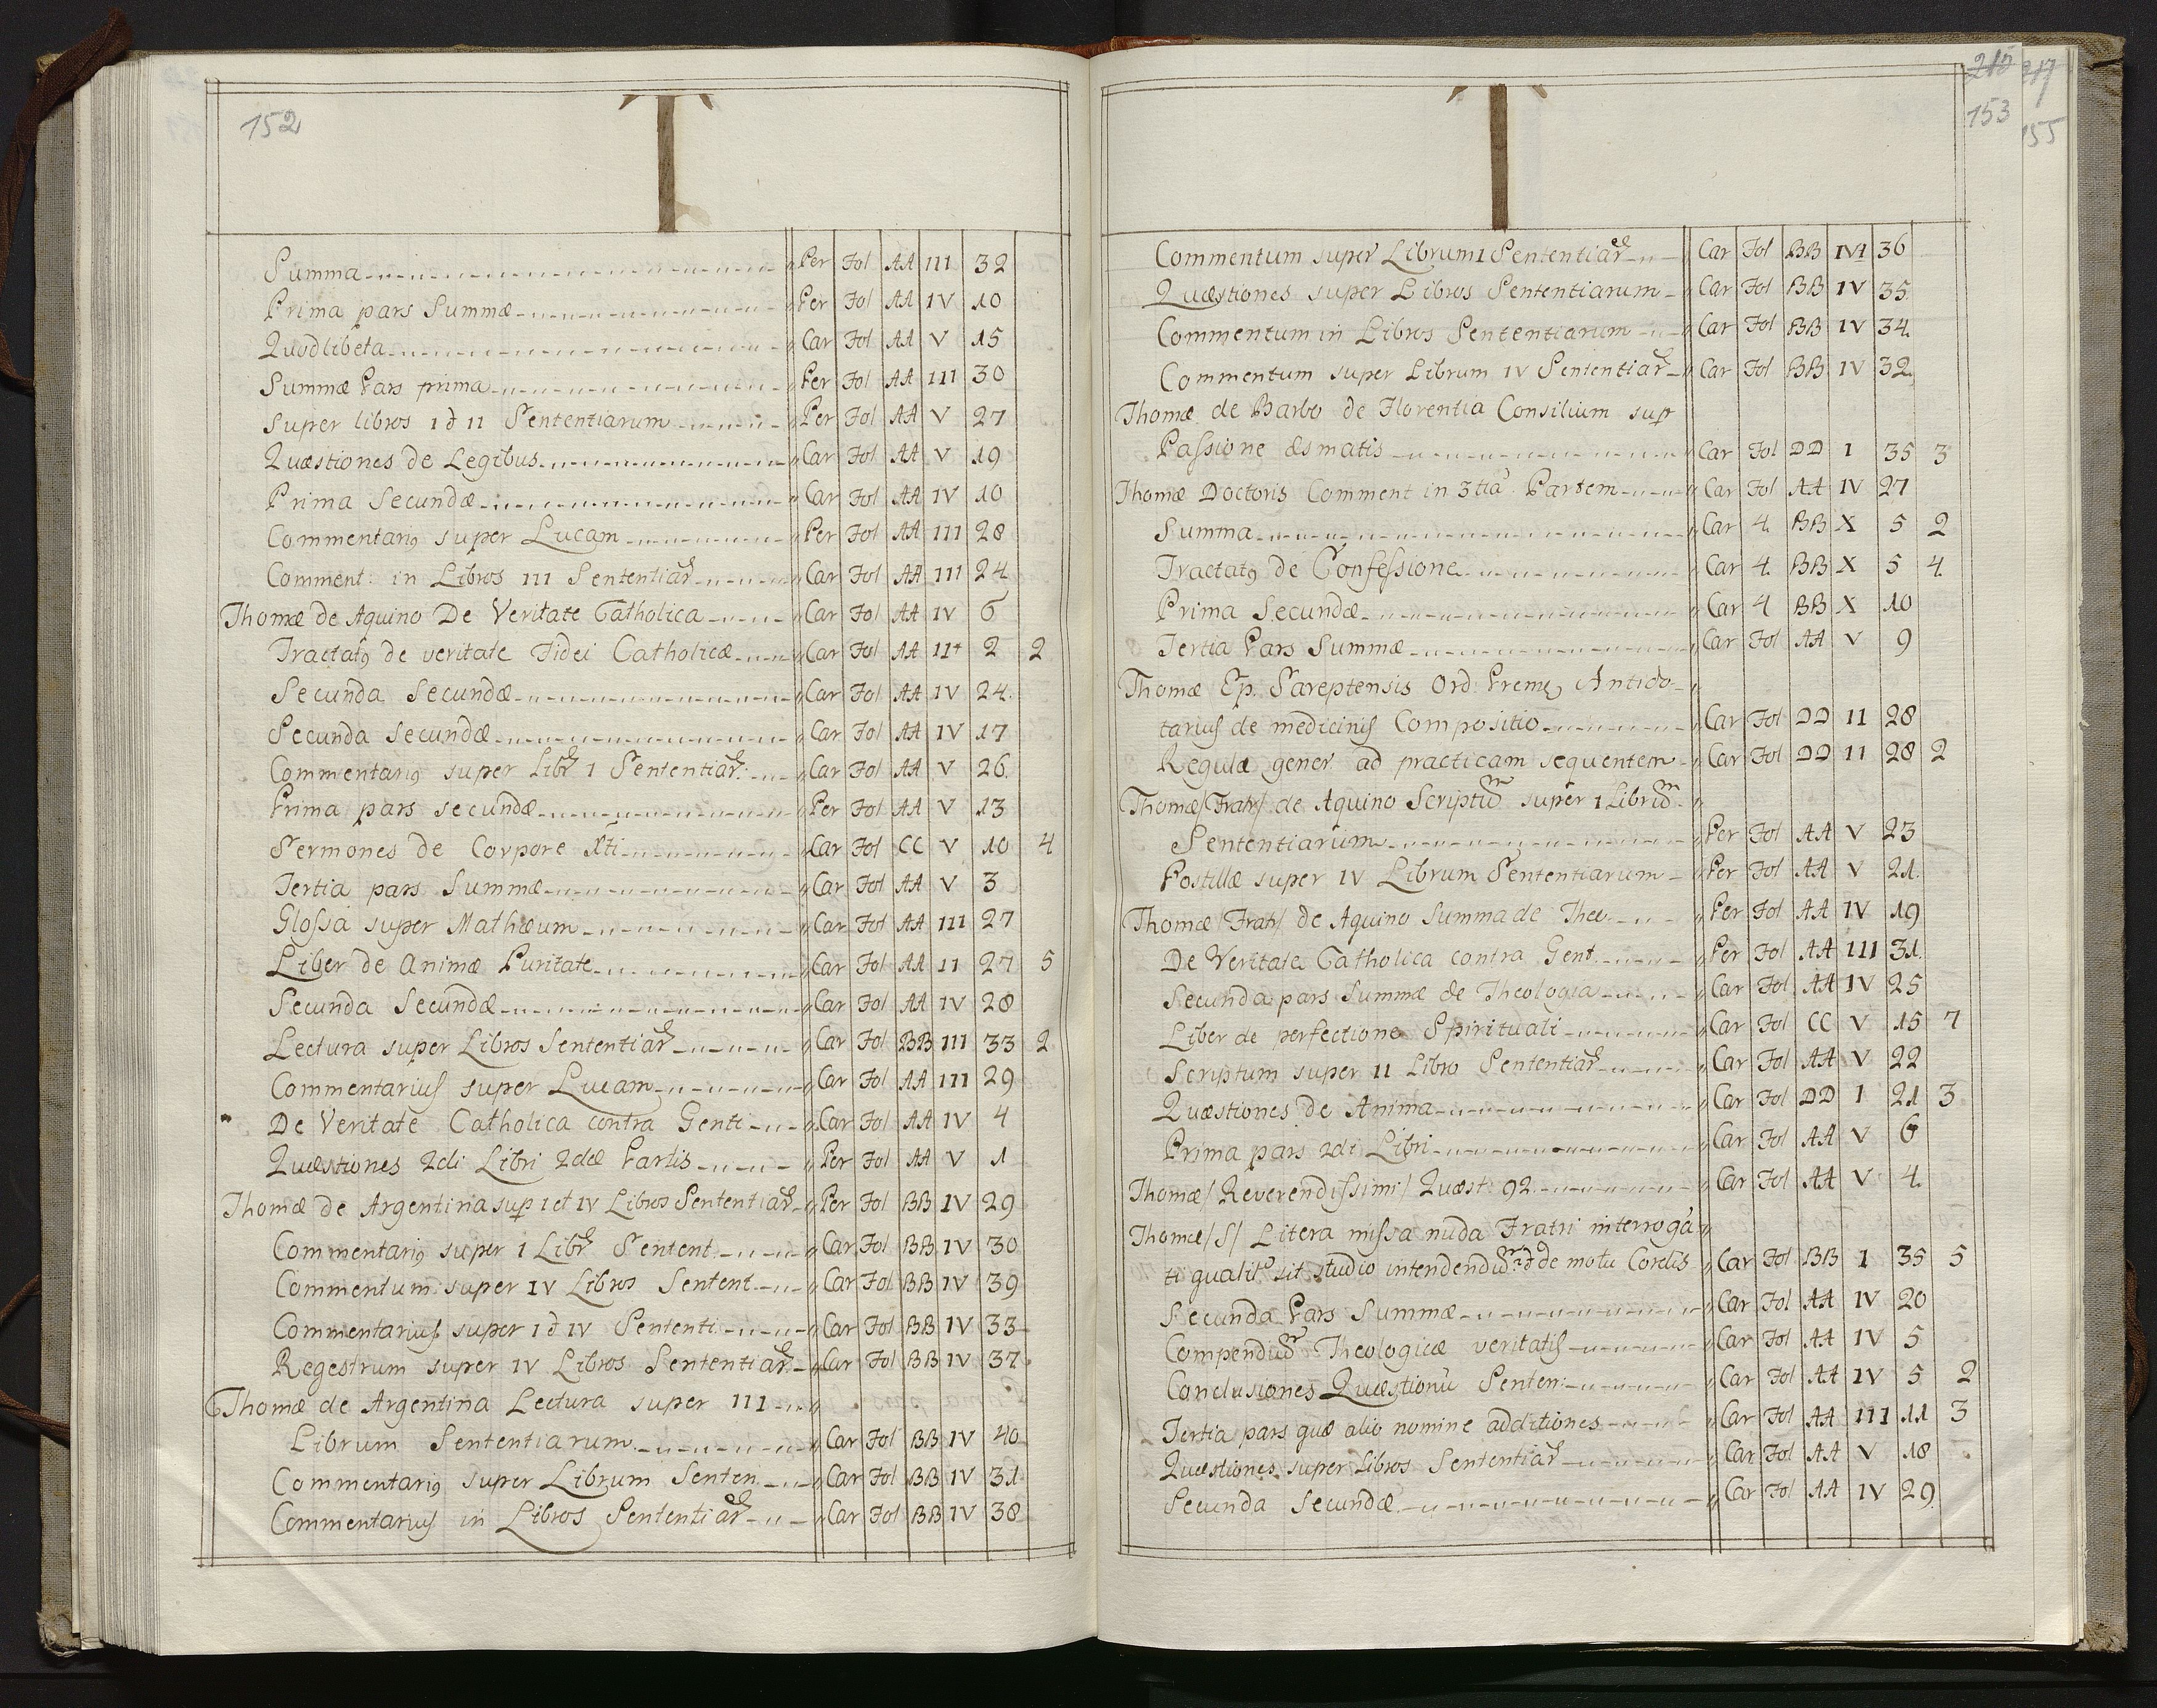 152
T
Summa Per Fol AA III 32
Prima pars Summæ Per Fol AA IV 10
Quodlibeta Car Fol AA V 15
Summæ Pars prima Per Fol AA III 30
Super libros I & II Sententiarum Per Fol AA V 27
Quæstiones de Legibus Car Fol AA V 19
Prima Secundæ Car Fol AA IV 10
Commentarig super Lucam Per Fol AA III 28
Comment: in Libros III Sententiar Car Fol AA III 24
Thomæ de Aquino De Veritate Catholica Car Fol AA IV 6
Tractatg de veritate Fidei Catholicæ Car Fol AA II+ 2 2
Secunda Secundæ Car Fol AA IV 24
Secunda Secundæ Car Fol AA IV 17
Commentarig super Libr I Sententiar: Car Fol AA V 26
Prima pars secundæ Per Fol AA V 13
Sermones de Corpore Xti Car Fol CC V 10 4
Tertia pars Summæ Car Fol AA V 3
Glossa super Mathæum Car Fol AA III 27
Liber de Animæ Puritate Car Fol AA II 27 5
Secunda Secundæ Car Fol AA IV 28
Lectura super Libros Sententiar Car Fol BB III 33 2
Commentarius super Lucam Car Fol AA III 29
De Veritate Catholica contra Genti Car Fol AA IV 4
Quæstiones 2di Libri 2dæ Partis Per Fol AA V 1
Thomæ de Argentina sup I et IV Libros Sententiar Per Fol BB IV 29
Commentarig super I Libr Sentent Car Fol BB IV 30
Commentum super IV Libros Sentent Car Fol BB IV 39
Commentarius super I & IV Sententi Car Fol BB IV 33
Regestrum super IV Libros Sententiar Car Fol BB IV 37
Thomæ de Argentina Lectura super III
Librum Sententiarum Car Fol BB IV 40
Commentarig super Librum Senten Car Fol BB IV 31
Commentarius in Libros Sententiar Car Fol BB IV 38
215 217
153 155
T
Commentum super Librum I Sententiar Car Fol BB IVI 36
Quæstiones super Libros Sententiarum Car Fol BB IV 35
Commentum in Libros Sententiarum Car Fol BB IV 34
Commentum super Librum IV Sententiar Car Fol BB IV 32
Thomæ de Barbo de Florentia Consilium sup
Passione asmatis Car Fol DD I 35 3
Thomæ Doctoris Comment in 3tiã Partem Car Fol AA IV 27
Summa Car 4 BB X 5 2
Tractatg de Confessione Car 4 BB X 5 4
Prima Secundæ Car 4 BB X 10
Tertia Pars Summæ Car Fol AA V 9
Thomæ Ep. Sareptensis Ord. Premg Antido
tarius de medicinis Compositio Car Fol DD II 28
Regulæ gener. ad practicam sequentem Car Fol DD II 28 2
Thomæ/Fratr/ de Aquino Scriptu super I Libru
Sententiarum Per Fol AA V 23
Postillæ super IV Librum Sententiarum Per Fol AA V 21
Thomæ/Fratr/ de Aquino Summa de Theo Per Fol AA IV 19
De Veritate Catholica contra Gent Per Fol AA III 31
Secunda pars Summæ de Theologia Car Fol AA IV 25
Liber de perfectione Spirituali Car Fol CC V 15 7
Scriptum super II Libro Sententiar Car Fol AA V 22
Quæstiones de Anima Car Fol DD I 21 3
Prima pars 2di Libri Car Fol AA V 6
Thomæ/Reverendissimi/ Quæst: 92 Car Fol AA V 4
Thomæ/S/ Litera missa nuda Fratri interroga
ti qualit sit studio intendendu & de motu Cordis Car Fol BB I 35 5
Secunda Pars Summæ Car Fol AA IV 20
Compendiu Theologicæ veritatis Car Fol AA IV 5
Conclusiones Quæstionu Senten: Car Fol AA IV 5 2
Tertia pars quæ alio nomine additiones Car Fol AA III 11 3
Quæstiones super Libros Sententiar Car Fol AA V 18
Secunda Secundæ Car Fol AA IV 29